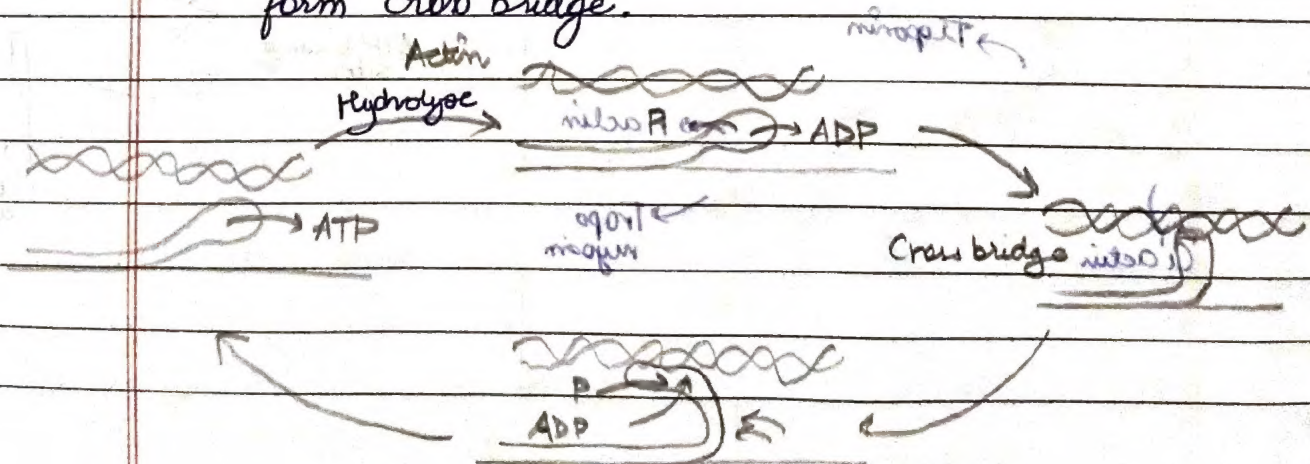 form cross bridge.
Actin
Hydrolyze
P
ADP
ATP
Cross bridge
P
ADP